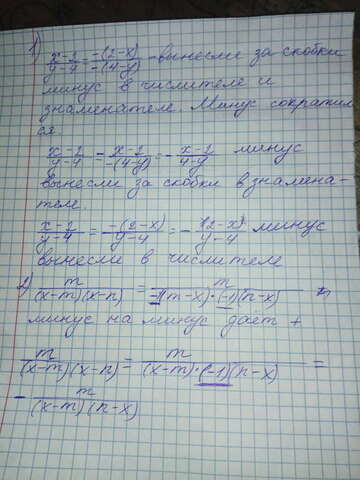 1) (x-2)/(y-4) = -(2-x)/-(4-y) - вынесли за скобки
минус в числителе и
знаменателе. Минус сократил
ся.
(x-2)/(y-4) = (x-2)/-(4-y) = - (x-2)/(4-y) минус
вынесли за скобки в знамена-
теле.
(x-2)/(y-4) = -(2-x)/(y-4) = - (2-x)/(y-4) минус
вынесли в числителе
2) m/((x-m)(x-n)) = m/(-1(m-x)·(-1)(n-x))
минус на минус дает +
m/((x-m)(x-n)) = m/((x-m)·(-1)(n-x)) =
- m/((x-m)(n-x))